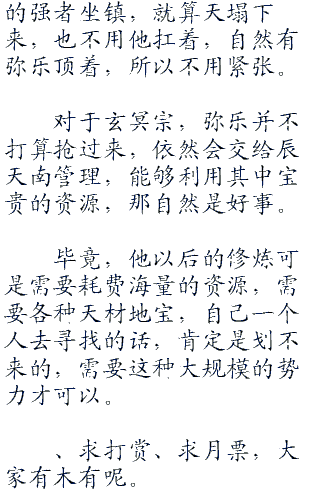 的强者坐镇，就算天塌下
来，也不用他扛着，自然有
弥乐顶着，所以不用紧张。
对于玄冥宗，弥乐并不
打算抢过来，依然会交给辰
天南管理，能够利用其中宝
贵的资源，那自然是好事。
毕竟，他以后的修炼可
是需要耗费海量的资源，需
要各种天材地宝，自己一个
人去寻找的话，肯定是划不
来的，需要这种大规模的势
力才可以。
、求打赏、求月票，大
家有木有呢。